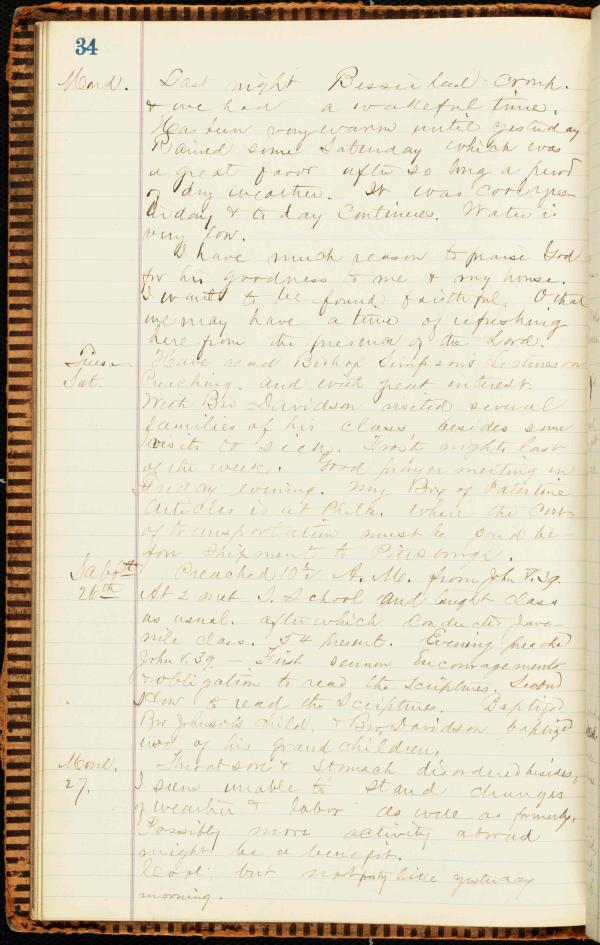 34
Mond. Last night Bessie had Croup.
& we had a wakeful time.
Has been very warm until yesterday
Rained some Saturday which was
a great favor after so long a period
of dry weather. It was cool yes-
terday & to day Continues. Water is
very low.
I have much reason to praise God
for his goodness to me & my house.
I want to be found faithful. O that
we may have a time of refreshing
here from the presence of the Lord.
Tues - Have read Bishop Simpson's Lectures on
Sat. Preaching. and with great interest.
With Bro Davidson visited several
families of his class besides some
visits to sick. Frosts nights last
of the week. Good prayer meeting on
Friday evening. My Box of Palestine
Articles is at Phila. where the Cost
of transportation must be paid be-
fore shipment to
Sabbth Preached 10½ A.M. from John V.39.
26th At 2 met S. School and taught Class
as usual. after which conducted juve-
nile class. 54 present. Evening preached
John V.39 — First sermon Encouragements
& obligation to read the Scriptures. Second
How to read the Scriptures. Baptized
Bro Johnson's child. & Bro. Davidson baptized
two of his grand children.
Mond. Throat sore & stomach disordered besides,
27. I seem unable to stand changes
of weather & labor as well as formerly.
Possibly more activity abroad
might be a benefit.
Cool, but not frosty like yesterday
morning.